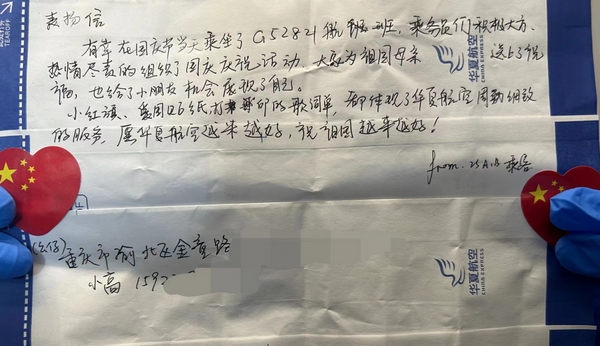 表扬信
有幸在国庆节当天乘坐了G52821航班,乘务员们积极大方、
热情尽责的组织了国庆庆祝活动,大家为祖国母亲送上了祝
福,也给了小朋友机会展现了自己。
小红旗、美国T26纸打印的歌词单,都体现了华夏航空周到细致
的服务,愿华夏航空越来越好,祝祖国越来越好!
from. 25A.B 乘客
重庆市渝北区金童路
小高 159
华夏航空
CHINA EXPRESS
华夏航空
CHINA EXPRESS
TEAR OFF